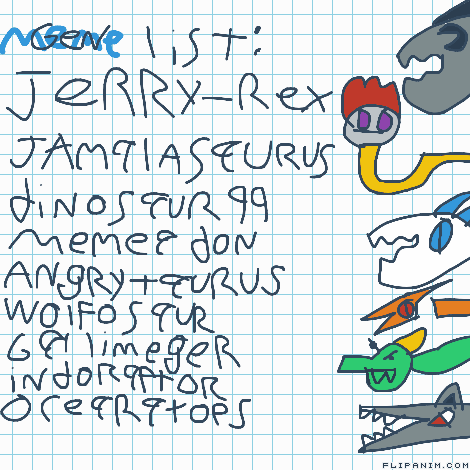 list:
JeRRY-Rex
JAMalASaURUS
dINOSaUR 99
MeMeadON
ANgRY+aURUS
WOlFOSaUR
Ga limegeR
INdORaptOR
OrcaRatOPS
FLIPANIM.COM